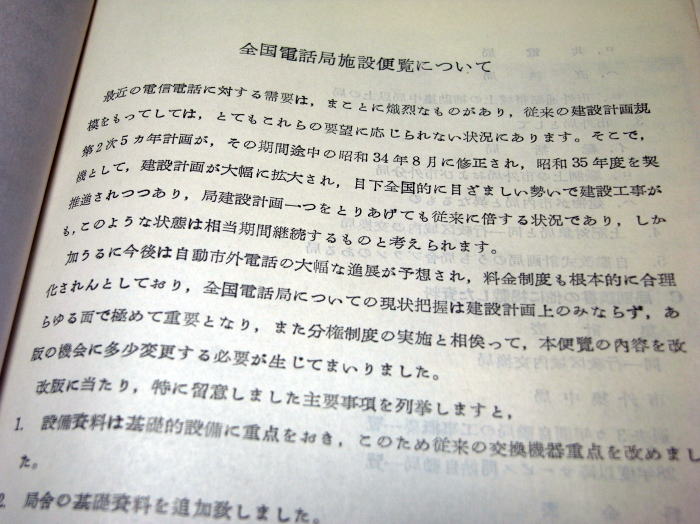 全国電話局施設便覧について
最近の電信電話に対する需要は，まことに熾烈なものがあり，従来の建設計画規
模をもってしては，とてもこれらの要望に応じられない状況にあります。そこで，
第2次5ヵ年計画が，その期間途中の昭和34年8月に修正され，昭和35年度を契
機として，建設計画が大幅に拡大され，目下全国的に目ざましい勢いで建設工事が
推進されつつあり，局建設計画一つをとりあげても従来に倍する状況であり，しか
も，このような状態は相当期間継続するものと考えられます。
加うるに今後は自動市外電話の大幅な進展が予想され，料金制度も根本的に合理
化されんとしており，全国電話局についての現状把握は建設計画上のみならず，あ
らゆる面で極めて重要となり，また分権制度の実施と相俟って，本便覧の内容を改
版の機会に多少変更する必要が生じてまいりました。
改版に当たり，特に留意しました主要事項を列挙しますと，
1. 設備資料は基礎的設備に重点をおき，このため従来の交換機器重点を改めまし
た。
2. 局舎の基礎資料を追加致しました。